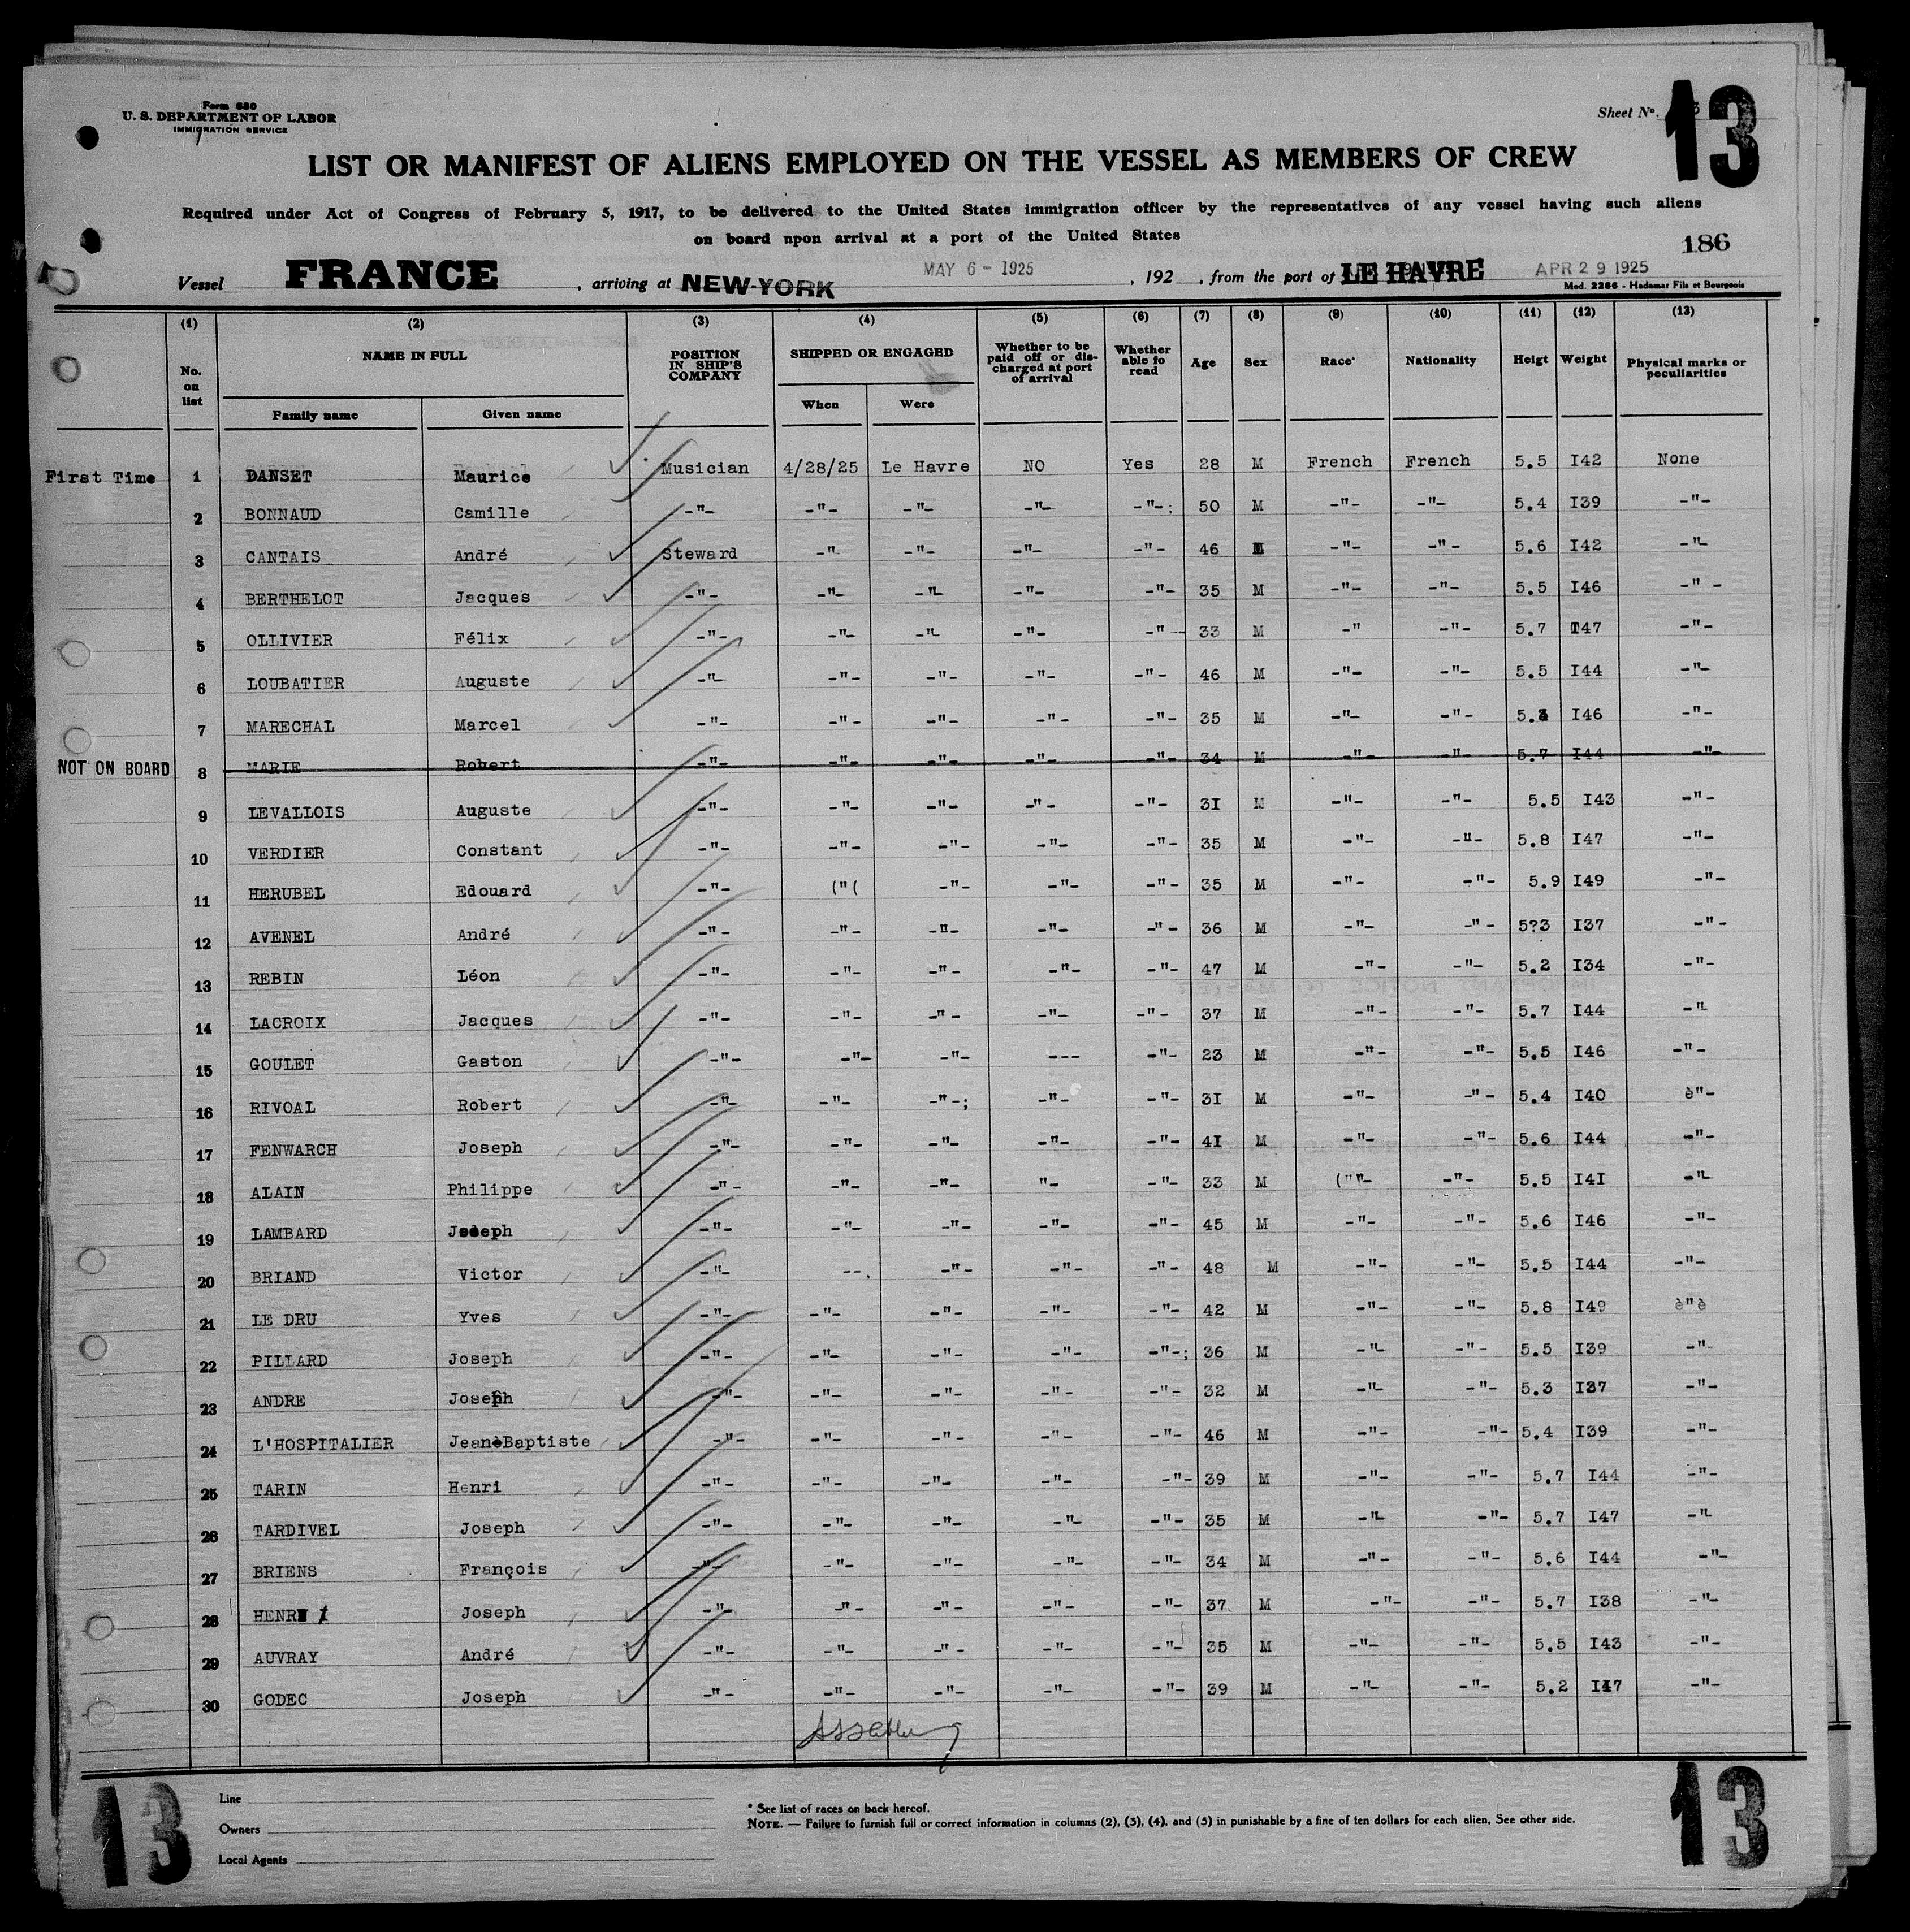 Form 680
U. S. DEPARTMENT OF LABOR
IMMIGRATION SERVICE
Sheet No.
13
LIST OR MANIFEST OF ALIENS EMPLOYED ON THE VESSEL AS MEMBERS OF CREW
Required under Act of Congress of February 5, 1917, to be delivered to the United States immigration officer by the representatives of any vessel having such aliens
on board npon arrival at a port of the United States
186
Vessel FRANCE , arriving at NEW-YORK MAY 6 - 1925 , 192 , from the port of LE HAVRE APR 29 1925
Mod. 2286 - Hademar Fils et Bourgeois
(1) (2) (3) (4) (5) (6) (7) (8) (9) (10) (11) (12) (13)
No. on list NAME IN FULL POSITION IN SHIP'S COMPANY SHIPPED OR ENGAGED Whether to be paid off or discharged at port of arrival Whether able to read Age Sex Race* Nationality Heigt Weight Physical marks or peculiarities
Family name Given name When Were
First Time 1 DANSET Maurice Musician 4/28/25 Le Havre NO Yes 28 M French French 5.5 I42 None
2 BONNAUD Camille -"- -"- -"- -"- -"-; 50 M -"- -"- 5.4 I39 -"-
3 CANTAIS André Steward -"- -"- -"- -"- 46 M -"- -"- 5.6 I42 -"-
4 BERTHELOT Jacques -"- -"- -"- -"- -"- 35 M -"- -"- 5.5 I46 -"-
5 OLLIVIER Félix -"- -"- -"- -"- -"- 33 M -" -"- 5.7 I47 -"-
6 LOUBATIER Auguste -"- -"- -"- -"- -"- 46 M -"- -"- 5.5 I44 -"-
7 MARECHAL Marcel -"- -"- -"- -"- -"- 35 M -"- -"- 5. I46 -"-
NOT ON BOARD 8 MARIE Robert -"- -"- -"- -"- -"- 34 M -"- -"- 5.7 I44 -"-
9 LEVALLOIS Auguste -"- -"- -"- -"- -"- 3I M -"- -"- 5.5 I43 -"-
10 VERDIER Constant -"- -"- -"- -"- -"- 35 M -"- -"- 5.8 I47 -"-
11 HERUBEL Edouard -"- ("( -"- -"- -"- 35 M -"- -"- 5.9 I49 -"-
12 AVENEL André -"- -"- -"- -"- -"- 36 M -"- -"- 5?3 I37 -"-
13 REBIN Léon -"- -"- -"- -"- -"- 47 M -"- -"- 5.2 I34 -"-
14 LACROIX Jacques -"- -"- -"- -"- -"- 37 M -"- -"- 5.7 I44 -"-
15 GOULET Gaston -"- -"- -"- --- -"- 23 M -"- -"- 5.5 I46 -"-
16 RIVOAL Robert -"- -"- -"-; -"- -"- 3I M -"- -"- 5.4 I40 è"-
17 FENWARCH Joseph -"- -"- -"- -"- -"- 4I M -"- -"- 5.6 I44 -"-
18 ALAIN Philippe -"- -"- -"- "- -"- 33 M (""- -"- 5.5 I4I -"-
19 LAMBARD Joseph -"- -"- -"- -"- -"- 45 M -"- -"- 5.6 I46 -"-
20 BRIAND Victor -"- --. -"- -"- -"- 48 M -"- -"- 5.5 I44 -"-
21 LE DRU Yves -"- -"- -"- -"- -"- 42 M -"- -"- 5.8 I49 è"è
22 PILLARD Joseph -"- -"- -"- -"- -"-; 36 M -"- -"- 5.5 I39 -"-
23 ANDRE Joseph -"- -"- -"- -"- -"- 32 M -"- -"- 5.3 I37 -"-
24 L'HOSPITALIER JeanèBaptiste -"- -"- -"- -"- -"- 46 M -"- -"- 5.4 I39 -"-
25 TARIN Henri -"- -"- -"- -"- -"- 39 M -"- -"- 5.7 I44 -"-
26 TARDIVEL Joseph -"- -"- -"- -"- -"- 35 M -"- -"- 5.7 I47 -"-
27 BRIENS François -"- -"- -"- -"- -"- 34 M -"- -"- 5.6 I44 -"-
28 HENRI Joseph -"- -"- -"- -"- -"- 37 M -"- -"- 5.7 I38 -"-
29 AUVRAY André -"- -"- -"- -"- -"- 35 M -"- -"- 5.5 I43 -"-
30 GODEC Joseph -"- -"- -"- -"- -"- 39 M -"- -"- 5.2 I47 -"-
13
Line
Owners
Local Agents
* See list of races on back hereof.
NOTE. — Failure to furnish full or correct information in columns (2), (3), (4), and (5) in punishable by a fine of ten dollars for each alien, See other side.
13